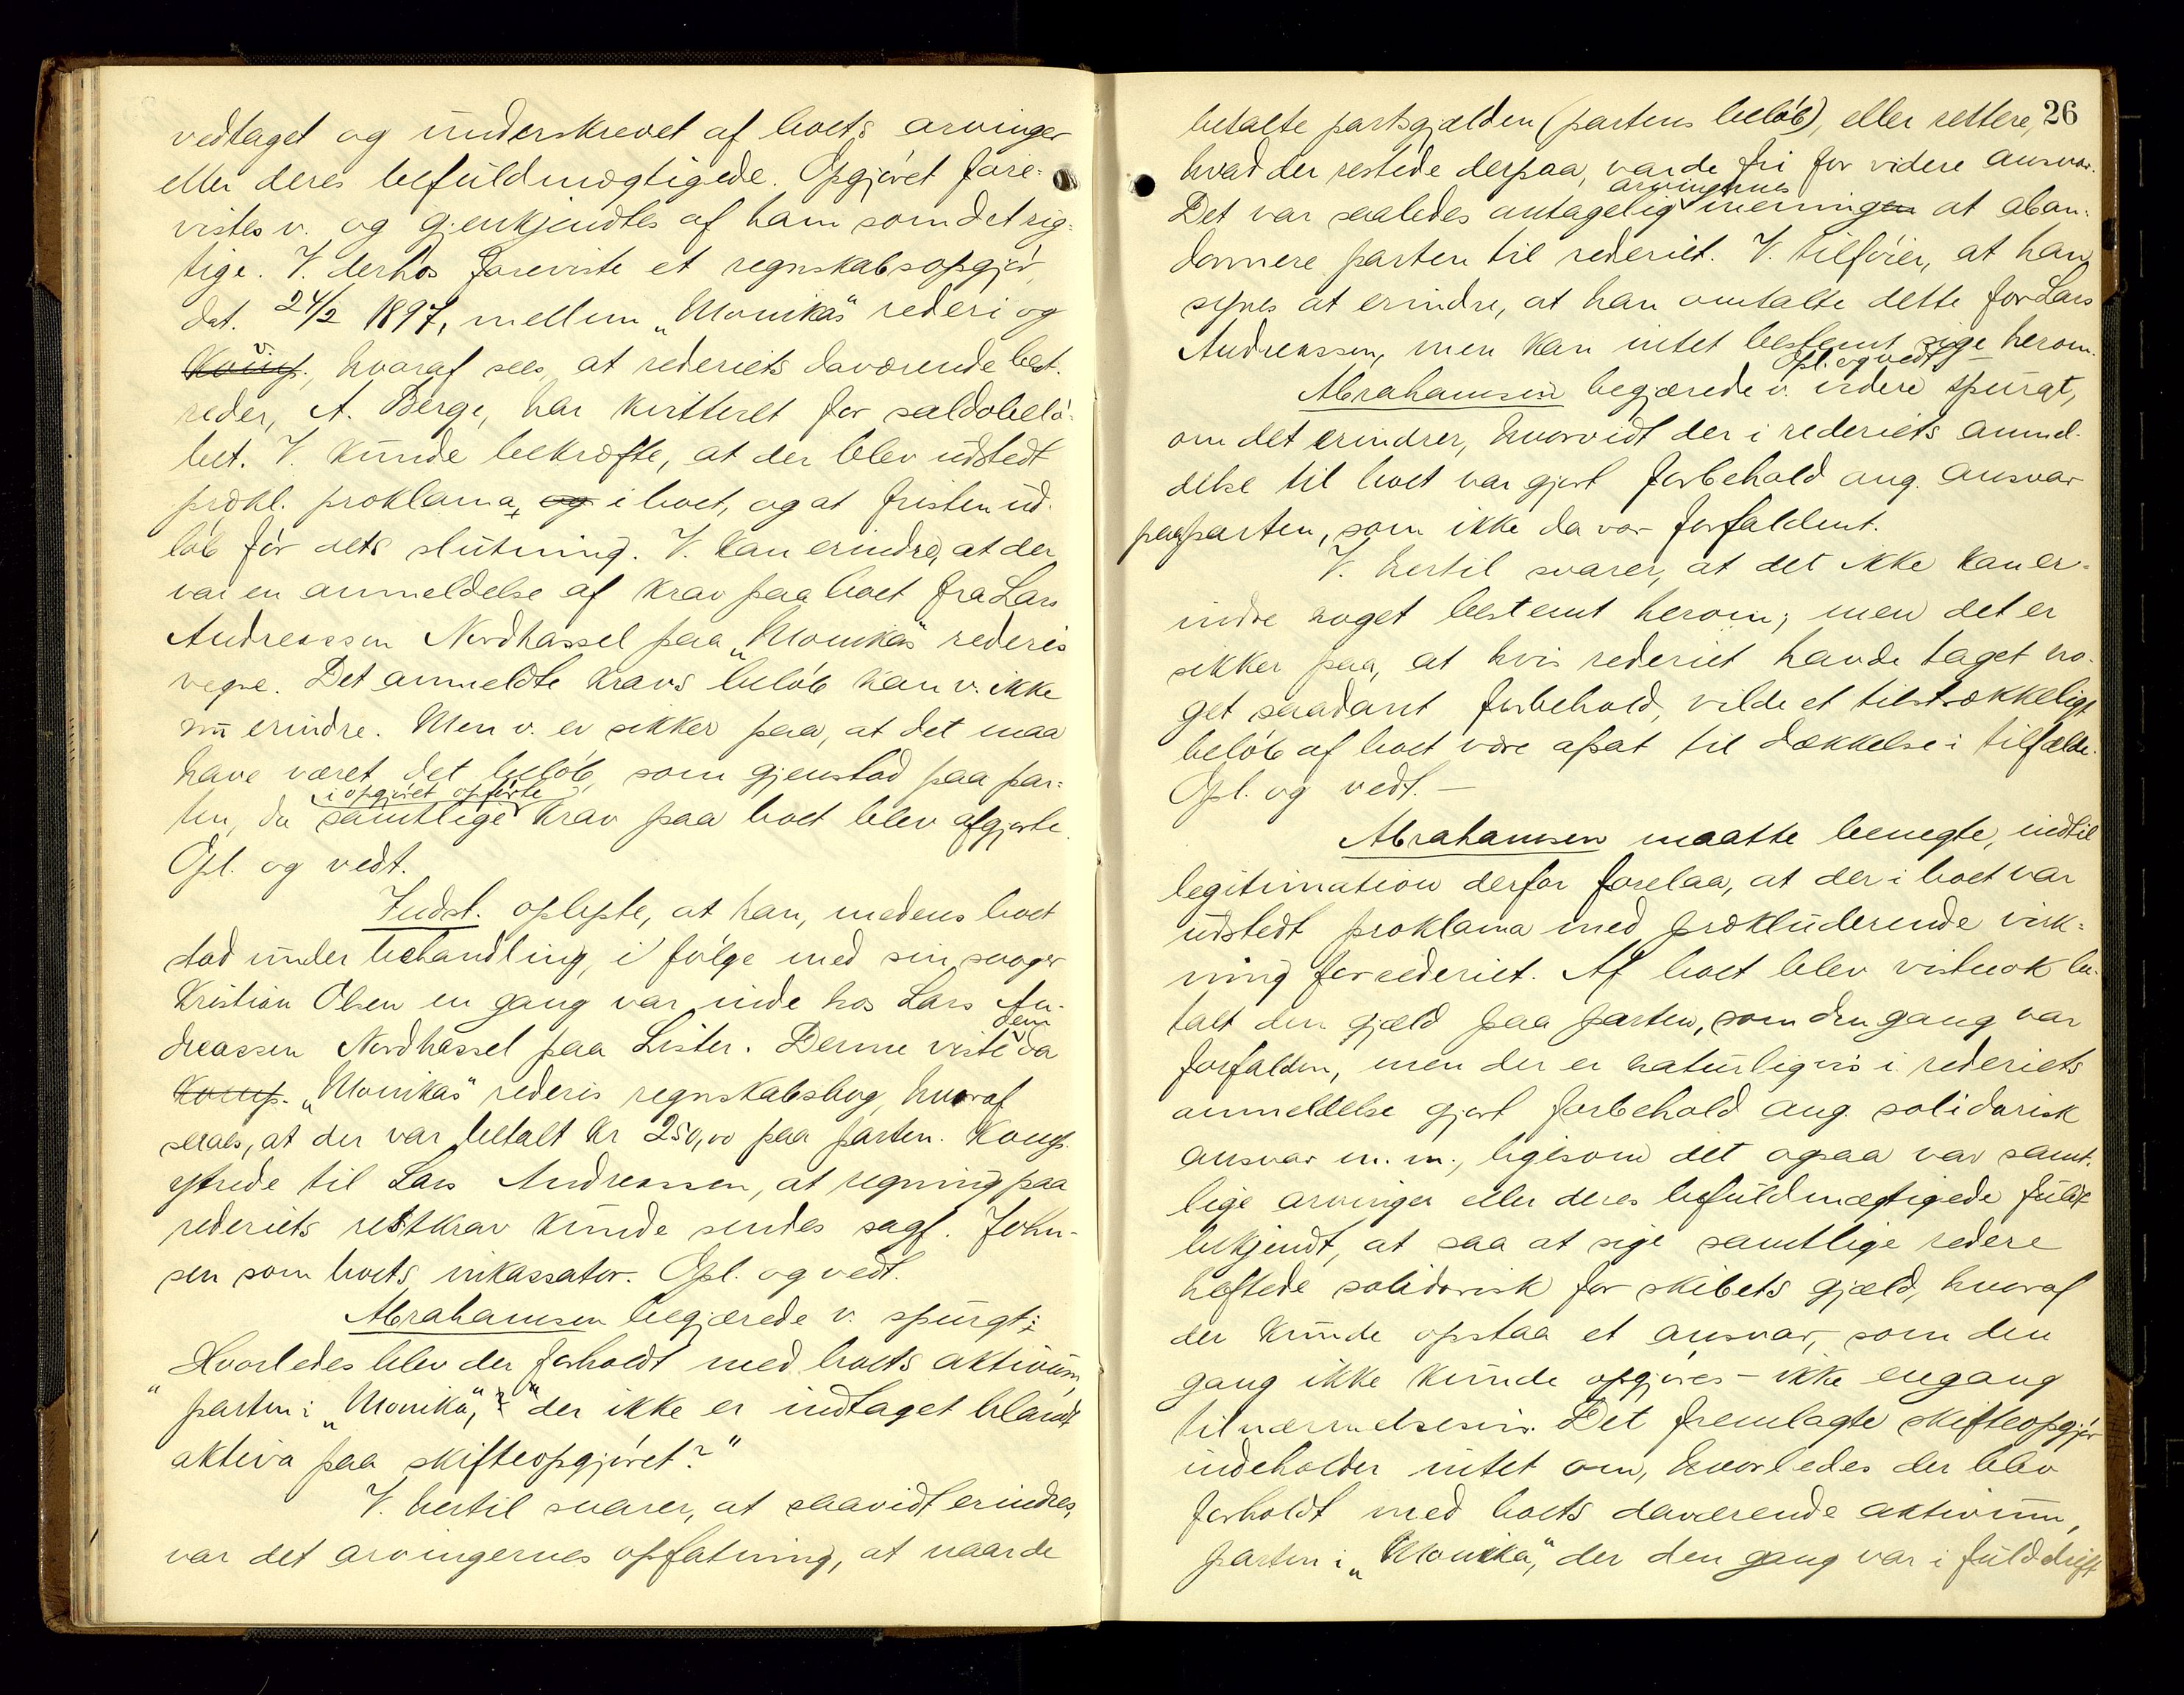 vedtaget og underskrevet af boets arvinger
eller deres befuldmægtigede. Opgjøret fore-
vistes v. og gjenkjendtes af ham som det rig-
tige. V. derhos foreviste et regnskabsopgjør,
dat. 24/2 1897, mellem „Monika's" rederi og
hvoraf sees, at rederiets daværende best.
reder, A. Berge, har kvitteret for saldobelø-
bet. V. kunde bekræfte, at der blev udstedt
prækl. proklama, og i boet, og at fristen ud-
løb før dets slutning. V. kan erindre, at der
var en anmeldelse af krav paa boet fra Lars
Andreassen Nordhassel paa „Monikas" rederis
vegne. Det anmeldte kravs beløb kan v. ikke
nu erindre. Men v. er sikker paa, at det maa
have været det beløb, som gjenstod paa par-
i opgjøret opførte
ten, da samtlige krav paa boet blev afgjorte.
Opl. og vedt.
Indst. oplyste, at han, medens boet
stod under behandling, i følge med sin svoger
Kristian Olsen en gang var inde hos Lars An-
dem
dreassen Nordhassel paa Lister. Denne viste da
Komp. „Monikas" rederis regnskabsbog, hvoraf
saaes, at der var betalt kr 250,00 paa parten. Komp.
ytrede til Lars Andreassen, at regning paa
rederiets restkrav kunde sendes sagf. John-
sen som boets inkassator. Opl. og vedt.
Abrahamsen begjærede v. spurgt:
Hvorledes blev der forholdt med boets aktivum,
"parten i „Monika", der ikke er indtaget blandt
aktiva paa skifteopgjøret?"
V. hertil svarer, at saavidt erindres,
var det arvingernes opfatning, at naar de
26
betalte partsgjælden (partens beløb), eller rettere,
hvad der restede derpaa, var de fri for videre ansvar.
arvingernes
Det var saaledes antagelig meningen at aban-
donnere parten til rederiet. V. tilføier, at han
synes at erindre, at han omtalte dette for Lars
Andreassen, men kan intet bestemt sige herom.
Opl. og vedt
Abrahamsen begjærede v. videre spurgt,
om det erindrer, hvorvidt der i rederiets anmel-
delse til boet var gjort forbehold ang. ansvar
paa parten, som ikke da var forfaldent.
V. hertil svarer, at det ikke kan er-
indre noget bestemt herom; men det er
sikker paa, at hvis rederiet havde taget no-
get saadant forbehold, vilde et tilstrækkeligt
beløb af boet være afsat til dækkelse i tilfælde.
Opl. og vedt. —
Abrahamsen maatte benegte, indtil
legitimation derfor forelaa, at der i boet var
udstedt proklama med prækluderende virk-
ning for rederiet. Af boet blev vistnok be-
talt den gjæld paa parten, som den gang var
forfalden, men der er naturligvis i rederiets
anmeldelse gjort forbehold ang. solidarisk
ansvar m. m., ligesom det ogsaa var samt-
lige arvinger eller deres befuldmægtigede fuldt
bekjendt, at saa at sige samtlige redere
heftede solidarisk for skibets gjæld, hvoraf
der kunde opstaa et ansvar, som den
gang ikke kunde opgjøres — ikke engang
tilnærmelsesvis. Det fremlagte skifteopgjør
indeholder intet om, hvorledes der blev
forholdt med boets daværende aktivum,
parten i „Monika", der den gang var i fuld drift